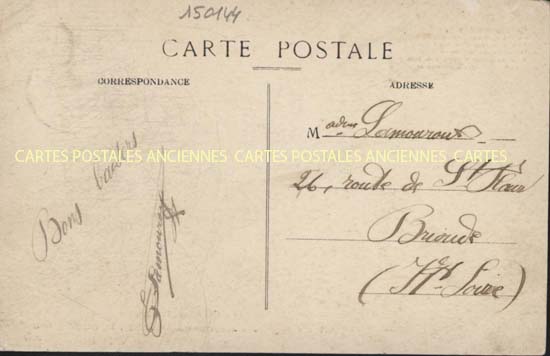 150144
CARTE POSTALE
CORRESPONDANCE
ADRESSE
Madame Lamouroux
CARTES POSTALES ANCIENNES CARTES POSTALES ANCIENNES
26, route de St Flour
Brioude
(Hte Loire)
Bons baisers
Lamouroux